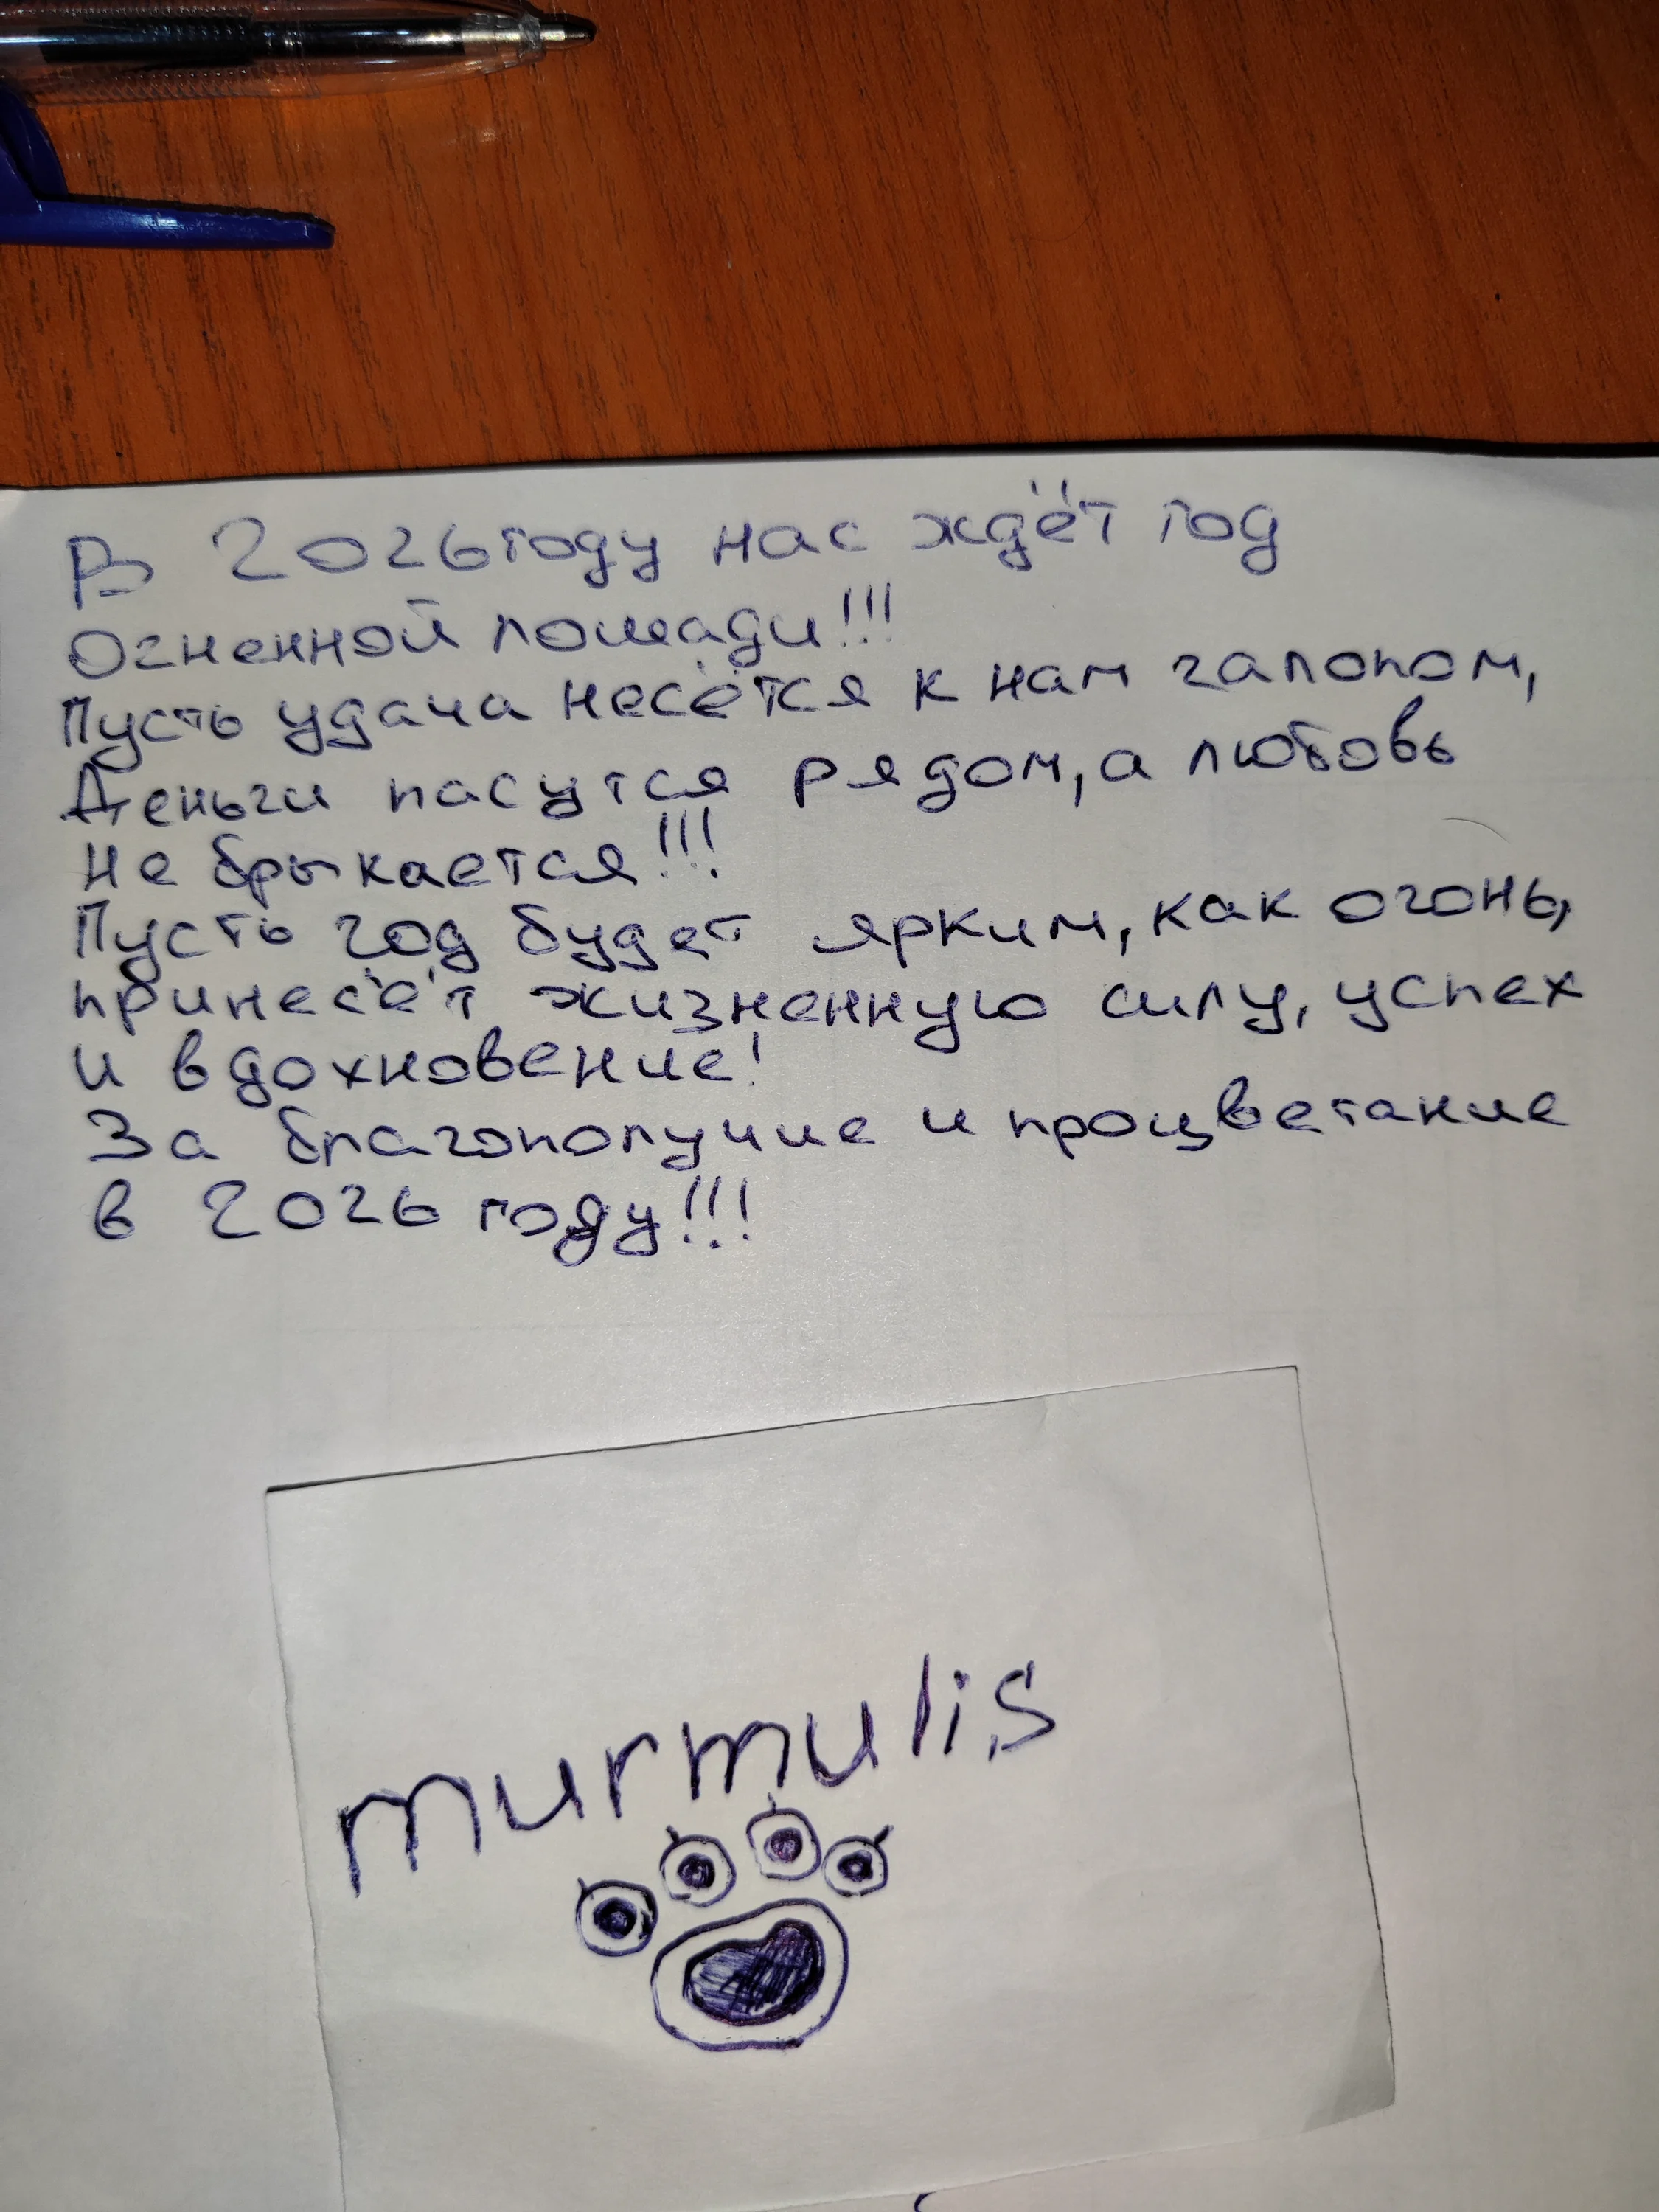 В 2026 году нас ждёт год
Огненной лошади!!!
Пусть удача несётся к нам галопом,
Деньги пасутся рядом, а любовь
Не брыкается!!!
Пусть год будет ярким, как огонь,
принесёт жизненную силу, успех
и вдохновение!
За благополучие и процветание
в 2026 году!!!
murmulis